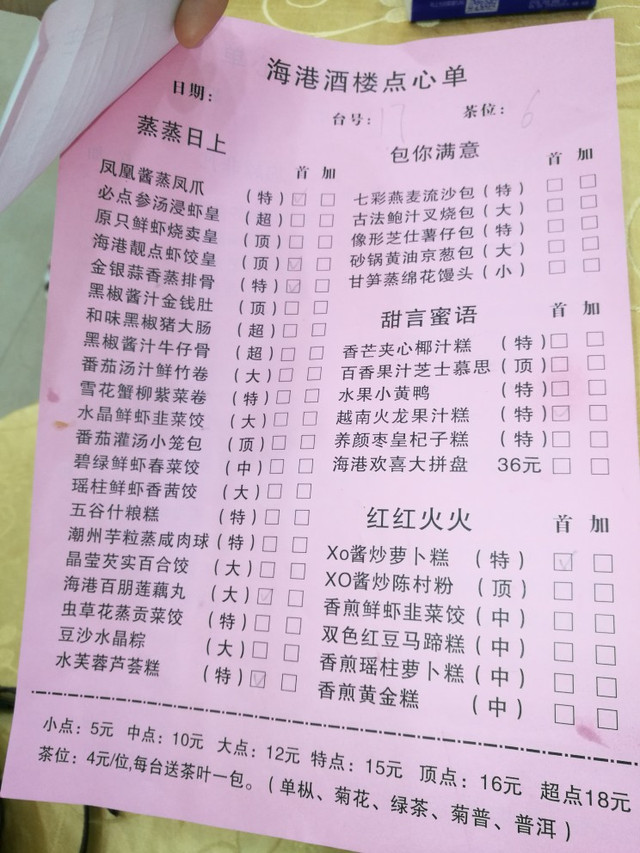 海港酒楼点心单
日期：
台号：17
茶位：6
蒸蒸日上
首 加
凤凰酱蒸凤爪 （特）
必点参汤浸虾皇 （超）
原只鲜虾烧卖皇 （顶）
海港靓点虾饺皇 （顶）
金银蒜香蒸排骨 （特）
黑椒酱汁金钱肚 （顶）
和味黑椒猪大肠 （超）
黑椒酱汁牛仔骨 （超）
番茄汤汁鲜竹卷 （大）
雪花蟹柳紫菜卷 （特）
水晶鲜虾韭菜饺 （大）
番茄灌汤小笼包 （顶）
碧绿鲜虾春菜饺 （中）
瑶柱鲜虾香茜饺 （大）
五谷什粮糕 （特）
潮州芋粒蒸咸肉球（特）
晶莹芡实百合饺 （大）
海港百朋莲藕丸 （大）
虫草花蒸贡菜饺 （特）
豆沙水晶粽 （大）
水芙蓉芦荟糕 （特）
包你满意
首 加
七彩燕麦流沙包（特）
古法鲍汁叉烧包（大）
像形芝仕薯仔包（特）
砂锅黄油京葱包（大）
甘笋蒸绵花馒头（小）
甜言蜜语
首 加
香芒夹心椰汁糕 （特）
百香果汁芝士慕思（顶）
水果小黄鸭 （特）
越南火龙果汁糕 （特）
养颜枣皇杞子糕 （特）
海港欢喜大拼盘 36元
红红火火
首 加
Xo酱炒萝卜糕 （特）
XO酱炒陈村粉 （顶）
香煎鲜虾韭菜饺（中）
双色红豆马蹄糕（中）
香煎瑶柱萝卜糕（中）
香煎黄金糕 （中）
小点：5元 中点：10元 大点：12元 特点：15元 顶点：16元 超点18元
茶位：4元/位,每台送茶叶一包。（单枞、菊花、绿茶、菊普、普洱）